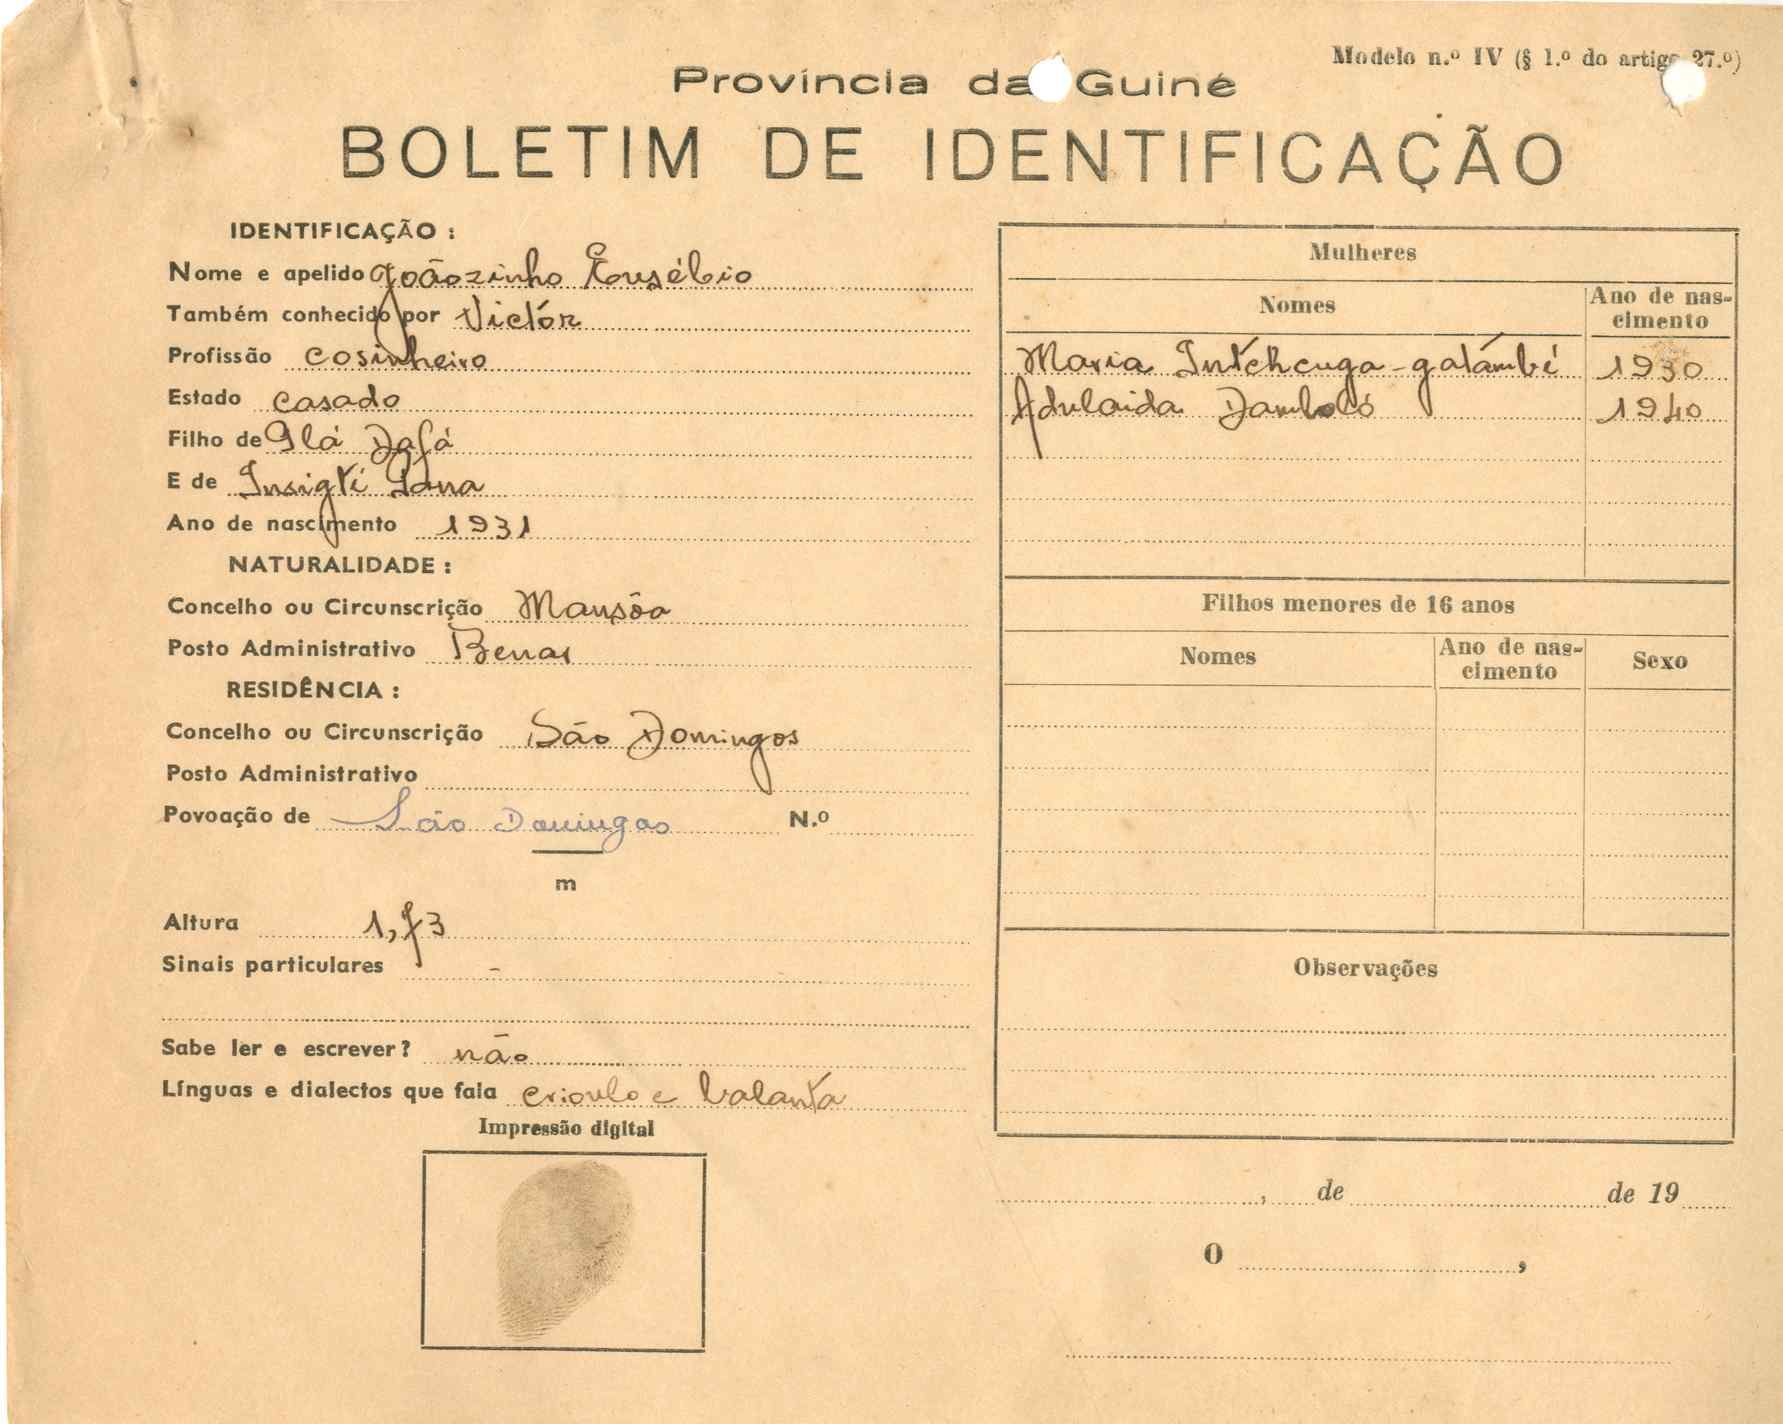 Modelo n.º IV (§ 1.º do artigo 27.º)
Província da Guiné
BOLETIM DE IDENTIFICAÇÃO
IDENTIFICAÇÃO :
Nome e apelido Joãozinho Eusébio
Também conhecido por Victór
Profissão cosinheiro
Estado casado
Filho de Glá Dafá
E de Insigti Gana
Ano de nascimento 1931
NATURALIDADE :
Concelho ou Circunscrição Mansôa
Posto Administrativo
RESIDÊNCIA :
Concelho ou Circunscrição São Domingos
Posto Administrativo
Povoação de São Domingos N.º
m
Altura 1,73
Sinais particulares -
Sabe ler e escrever? não
Línguas e dialectos que fala crioulo e balanta
Impressão digital
Mulheres
Nomes Ano de nas-
cimento
Maria Intchcuga-galámbé 1930
Adulaida 1940
Filhos menores de 16 anos
Nomes Ano de nas-
cimento Sexo
Observações
, de de 19
O ,